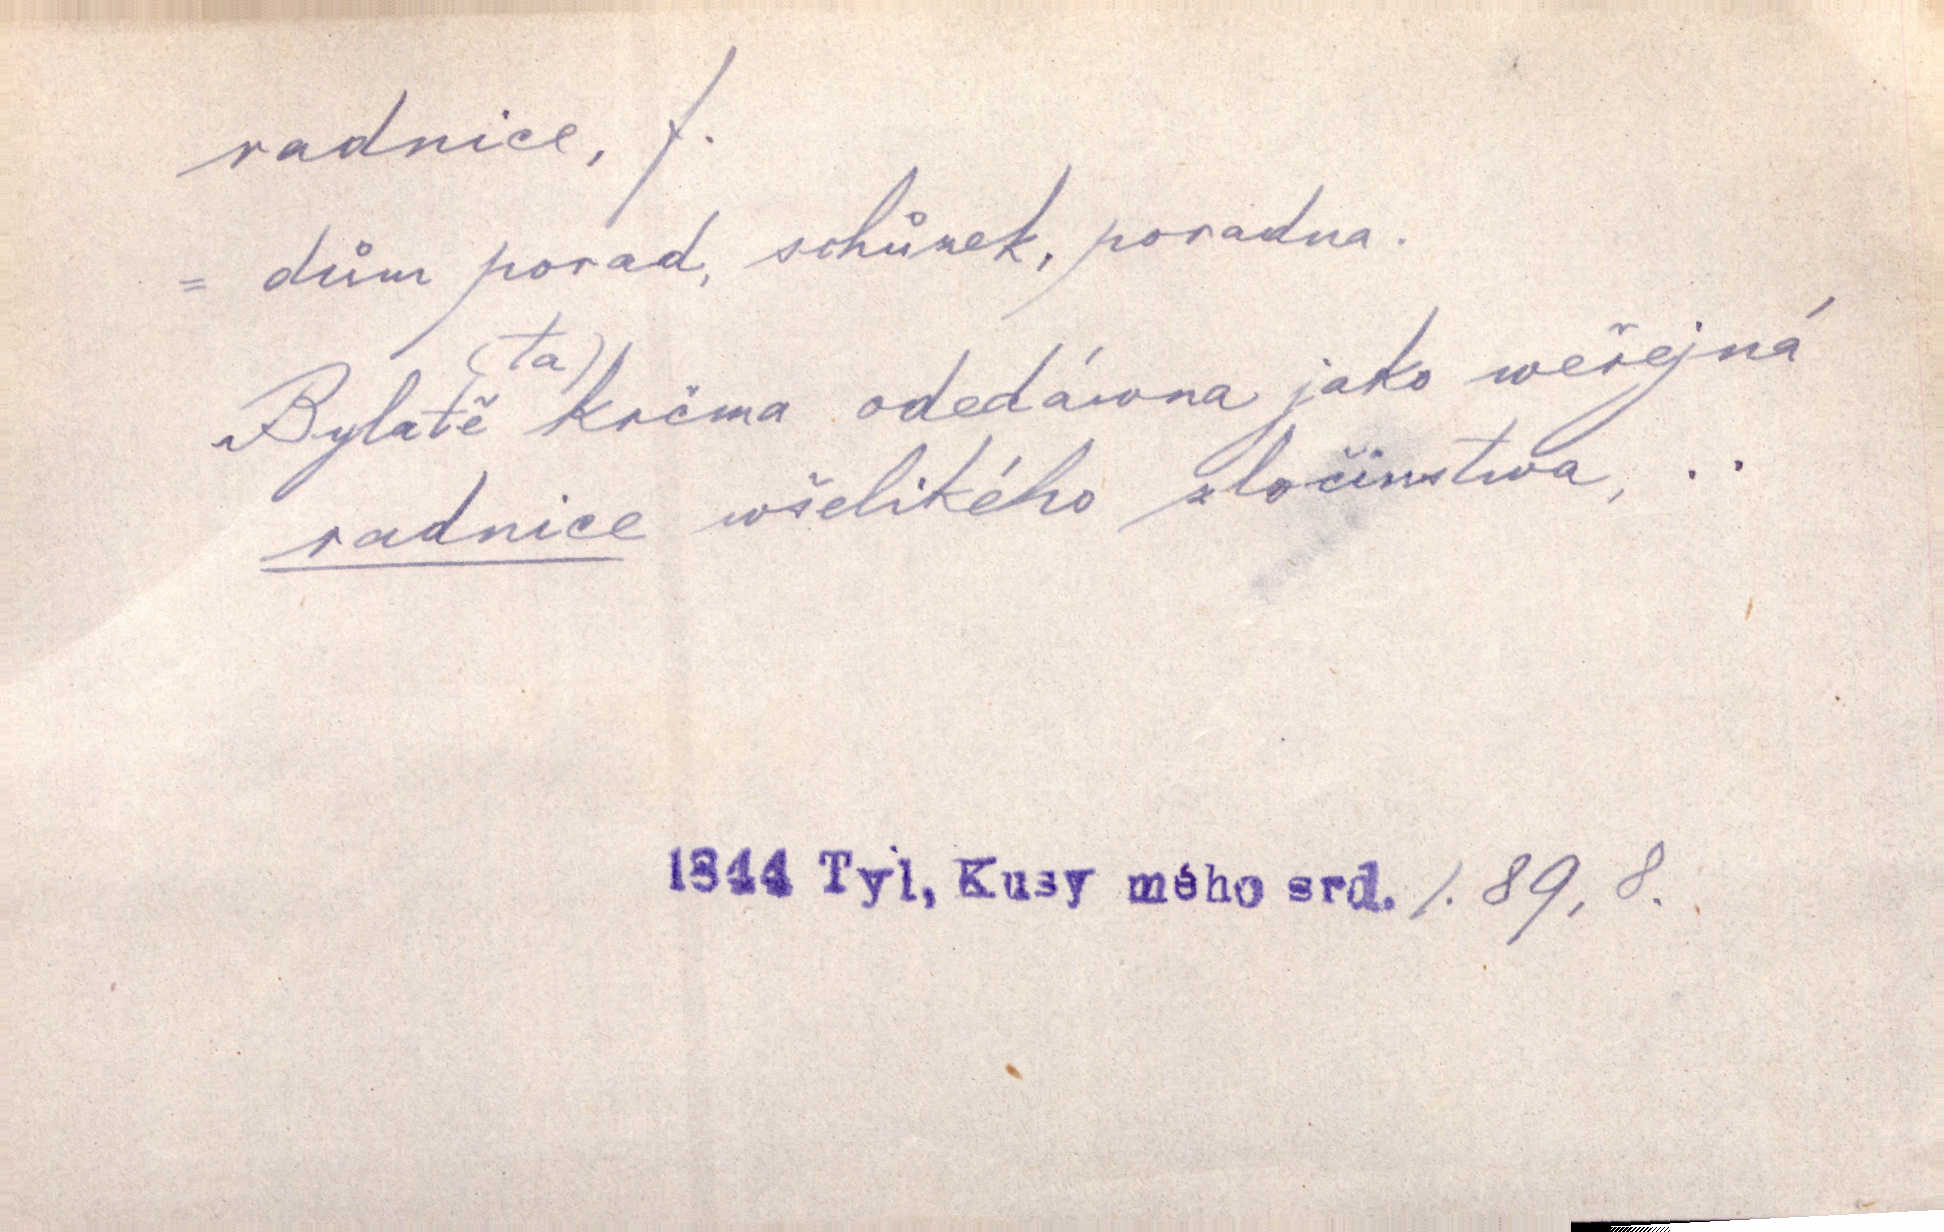 radnice, f.
= dům porad, schůnek, poradna.
(ta)
Bylatě krčma odedáwna jako weřejná
radnice wšelikého zločinstwa, ..
1844 Tyl, Kusy mého srd. 1. 89, 8.